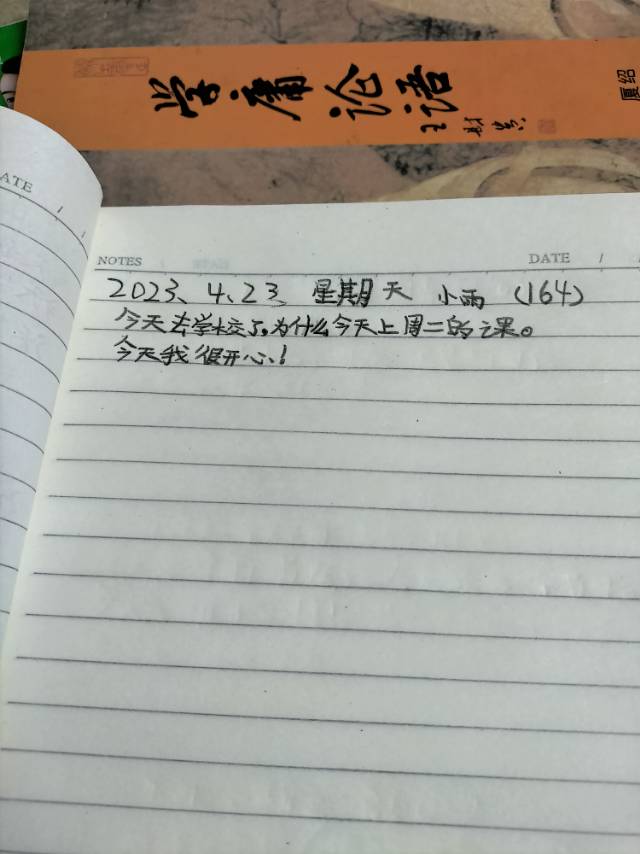 学庸论语
王财贵
厦绍
ATE / /
NOTES DATE / /
2023、4、23、星期天 小雨 (164)
今天去学校了,为什么今天上周二的课。
今天我很开心!